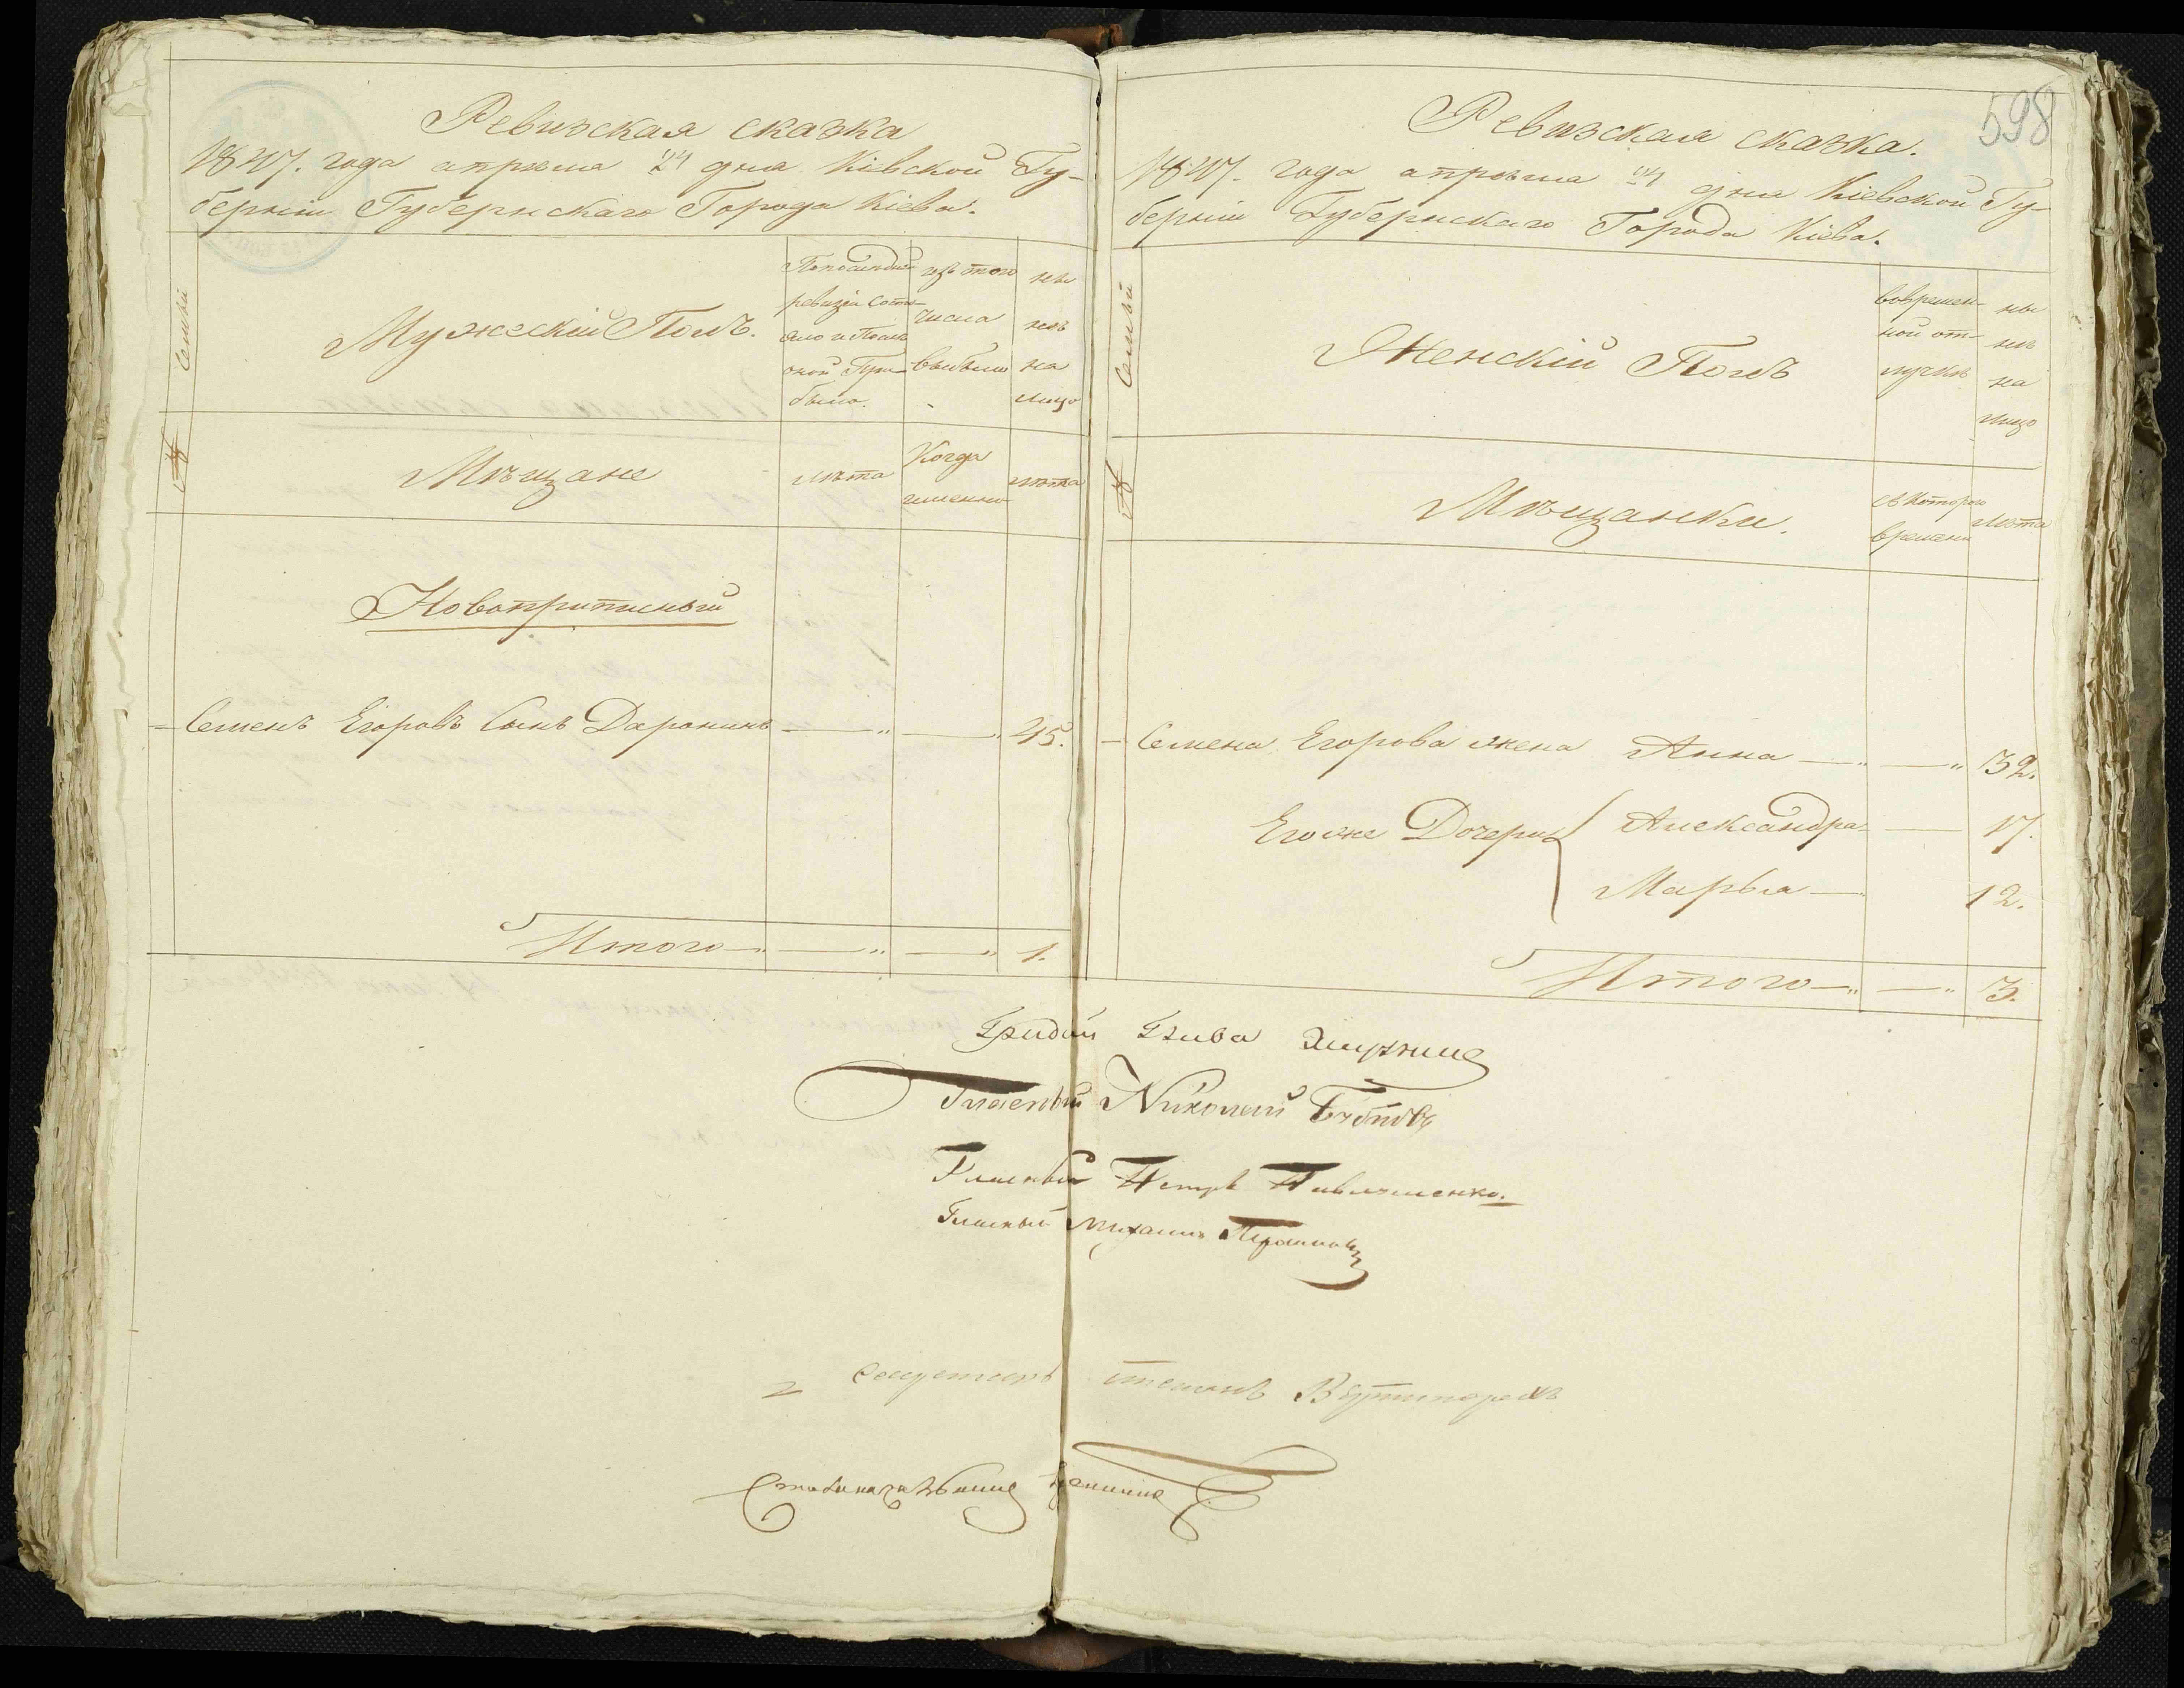 598
Ревизская сказка
1847. года апреля 24 дня Кіевской Гу-
берніи Губернскаго Города Кіева.
Семьи
Мужескій Полъ.
По последней
ревизіи состо-
было.
изъ того
числа
выбыло
ны
не
на
лицо
№
Мѣщане
лѣта
Когда
именно
лѣта
Новоприписный
Семенъ Егоровъ Сынъ Даронинъ — „ — „ 45.
Итого — „ — „ — „ 1.
Ревизская сказка.
1847. года апреля 24 дня Кіевской Гу-
берніи Губернскаго Города Кіева.
Семьи
Женскій Полъ
вовремен-
ной от-
лучкѣ
ны
не
на
лицо
№
Мѣщанки.
съ котораго
времени
Лѣта
Семена Егорова жена Анна — „ — „ 32.
Его же Дочери Александра — 17.
Марья — 12.
Итого — „ — „ 3.
Гласный Николай
Гласный Петръ
Гласный Михаилъ
Столоначальникъ